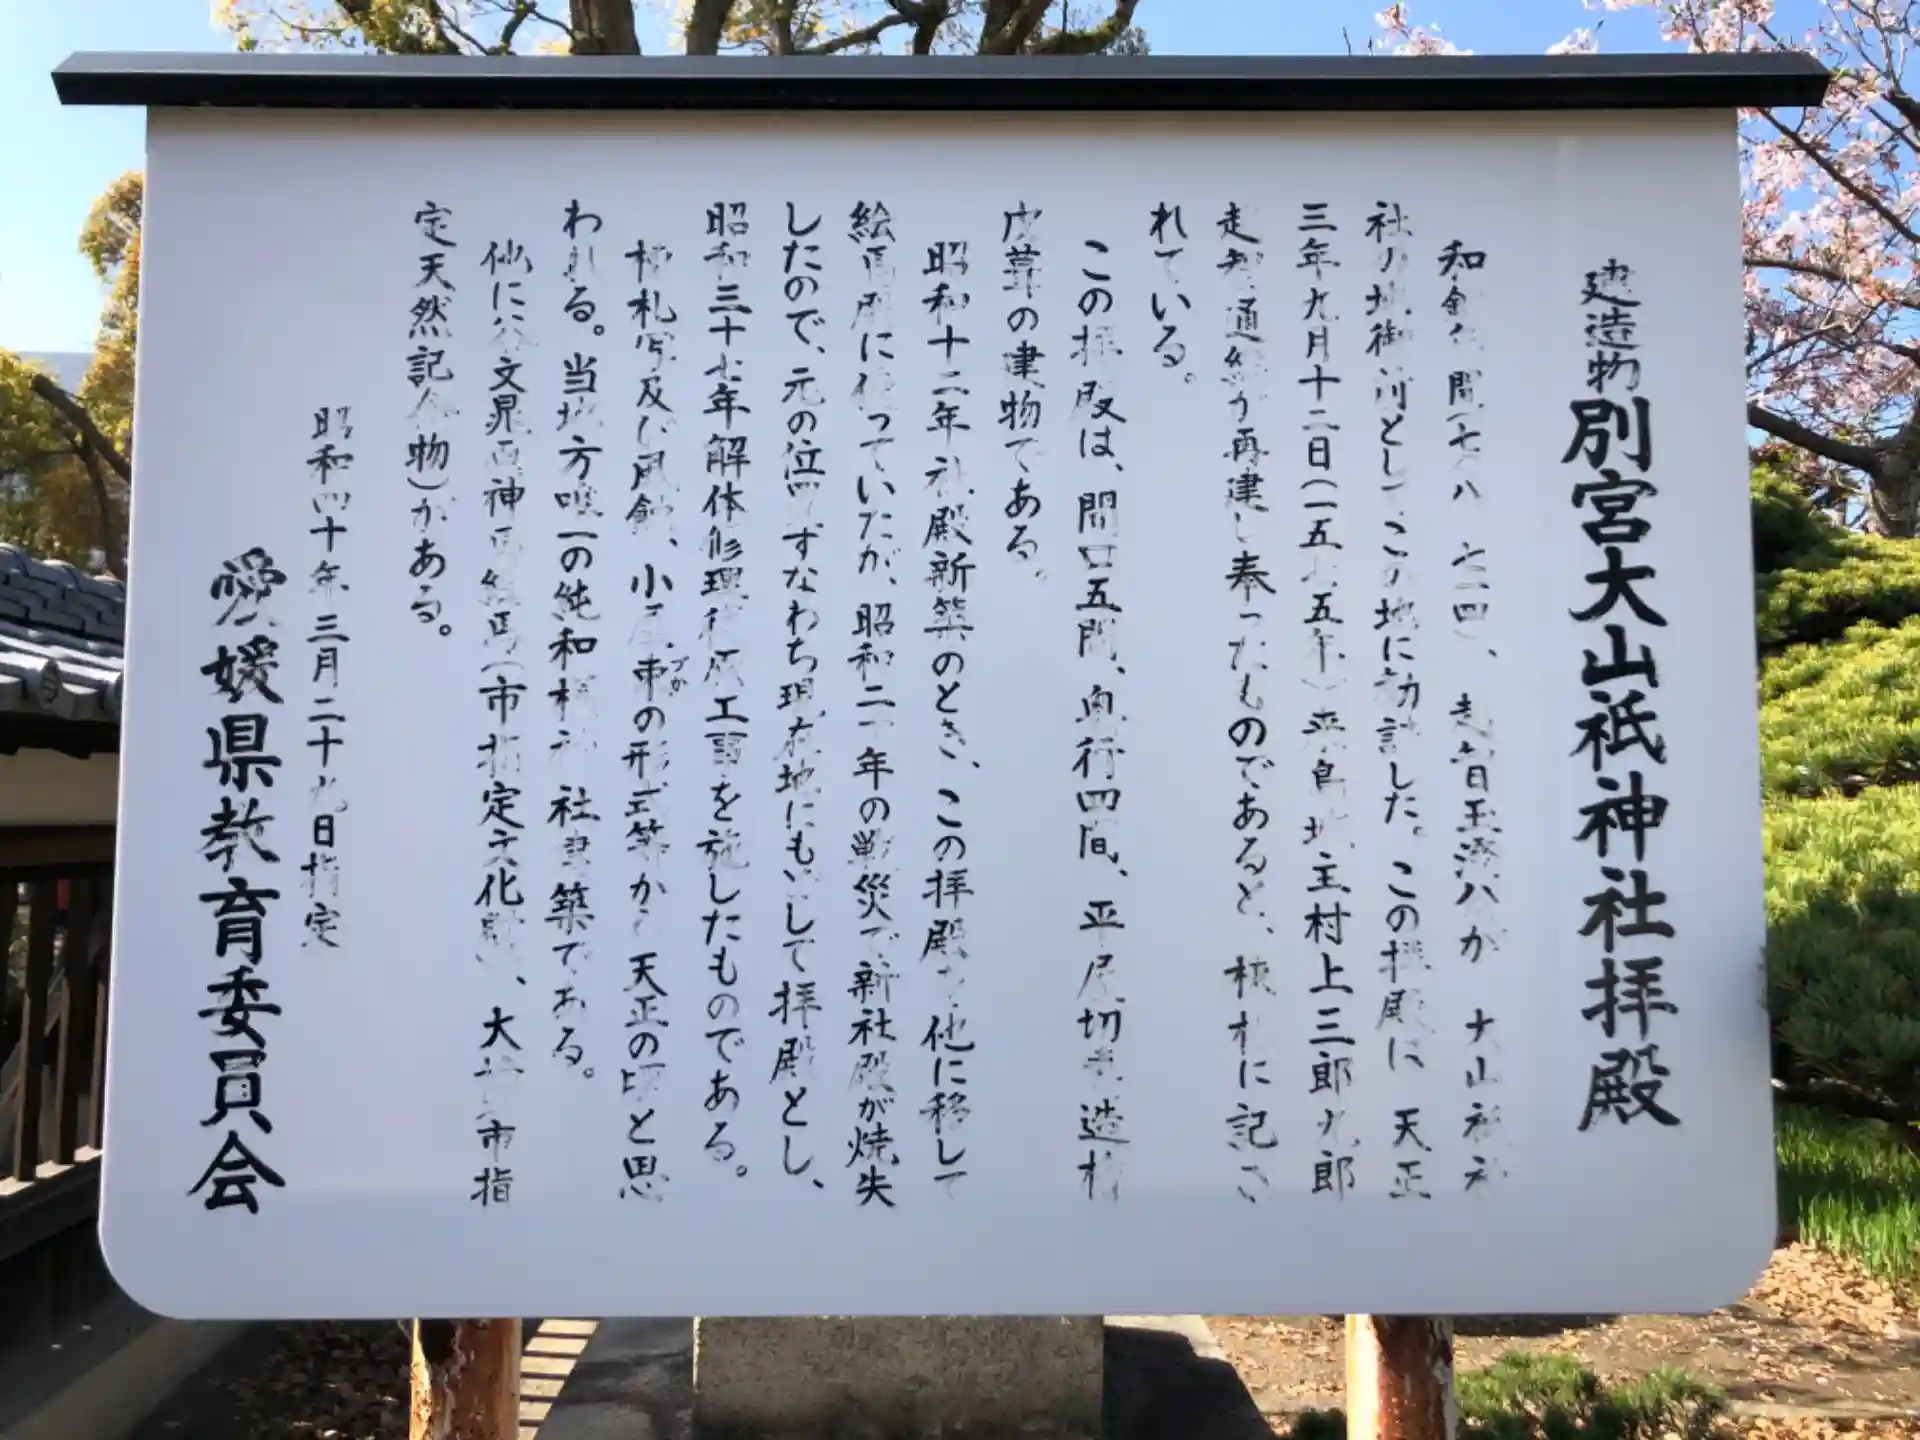 建造物 別宮大山祇神社拝殿
和銅年間(七〇八―七一四)、越智玉澄公が 大山祇神
社の地御前としてこの地に勧請した。この拝殿は 天正
三年九月十二日(一五七五年)来島城主村上三郎九郎
越智通総が再建し奉ったものであると、棟札に記さ
れている。
この拝殿は、間口五間、奥行四間、平屋切妻造桧
皮葺の建物である。
昭和十二年社殿新築のとき、この拝殿を他に移して
絵馬殿に使っていたが、昭和二十年の戦災で新社殿が焼失
したので、元の位置すなわち現在地にもどして拝殿とし、
昭和三十七年解体修理復原工事を施したものである。
棟札写及び風蝕、小屋束の形式等から天正の頃と思
われる。当地方唯一の純和様神社建築である。
他に谷文晁画神馬絵馬(市指定文化財)、大楠(市指
定天然記念物)がある。
昭和四十年三月二十九日指定
愛媛県教育委員会